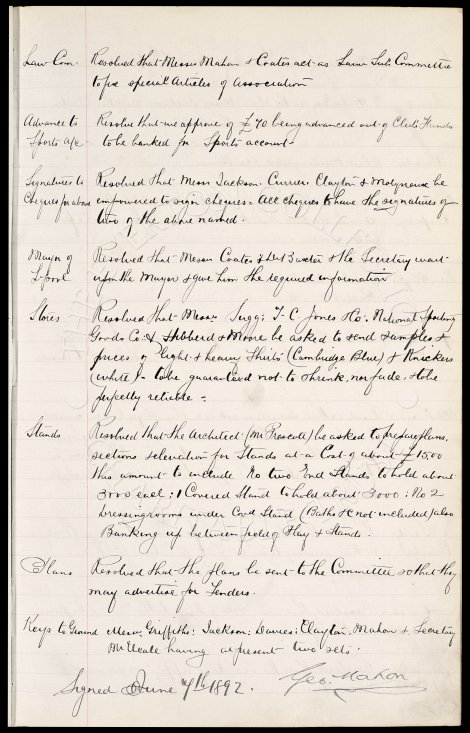 Law Com. Resolved that Messrs Mahon & Coates act as Law Sub. Committee
to fix special Articles of Association
Advance to Resolve that we approve of £70 being advanced out of Club's Funds
Sports a/c to be banked for Sports account
Signatures to Resolved that Messrs Jackson. Currier. Clayton & Molyneux be
Cheques for above empowered to sign cheques. All cheques to have the signatures of
two of the above named.
Mayor of Resolved that Messrs Coates & the Secretary wait
L'pool upon the Mayor & give him the required information
Stores Resolved that Messrs Sugg; T. C. Jones & Co; National Sporting
Goods Co. & Hibberd & Moore be asked to send samples &
prices of Light & heavy Shirts (Cambridge Blue) & Knickers
(white) - to be guaranteed not to shrink, nor fade, & to be
perfectly reliable -
Stands Resolved that the Architect (Mr Prescott) be asked to prepare plans,
sections & elevation for Stands at a Cost of about £1500
this amount to include No two End Stands to hold about
3000 each; 1 Covered Stand to hold about 3000; No 2
Dressingrooms under Cov'd Stand (Baths &c not included) also
Banking up between field of Play & Stands.
Plans Resolved that the plans be sent to the Committee, so that they
may advertise for Tenders.
Keys to Ground Messrs Griffiths; Jackson; Davies; Clayton, Mahon & Secretary
Mr Neale having at present two sets.
Signed June 7th 1892. Geo. Mahon